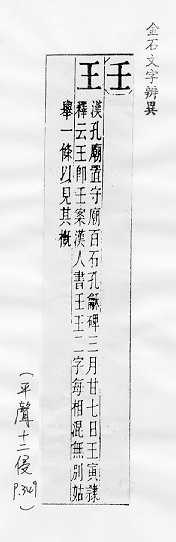 金石文字辨異
壬
王
漢孔廟置守廟百石孔龢碑三月廿七日王寅隸
釋云王即壬案漢人書壬王二字每相混無別姑
舉一條以見其概
(平聲十二侵 P.349)